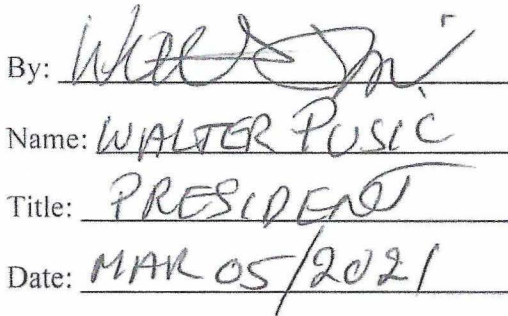 By:
Name: WALTER PUSIC
Title: PRESIDENT
Date: MAR 05/2021